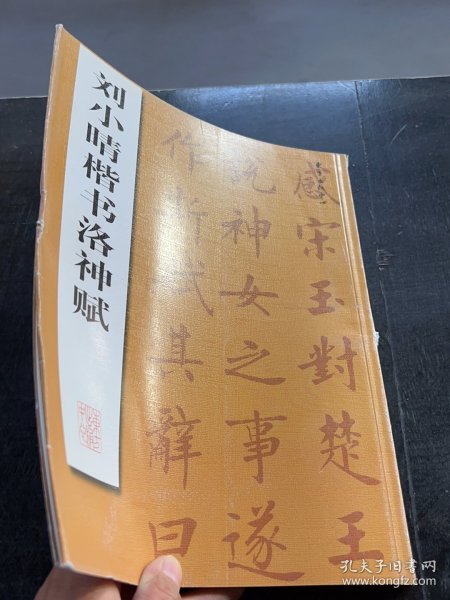 刘小晴楷书洛神赋
感宋玉對楚王
說神女之事遂
作斯賦其辭曰
孔夫子旧书网
www.kongfz.com